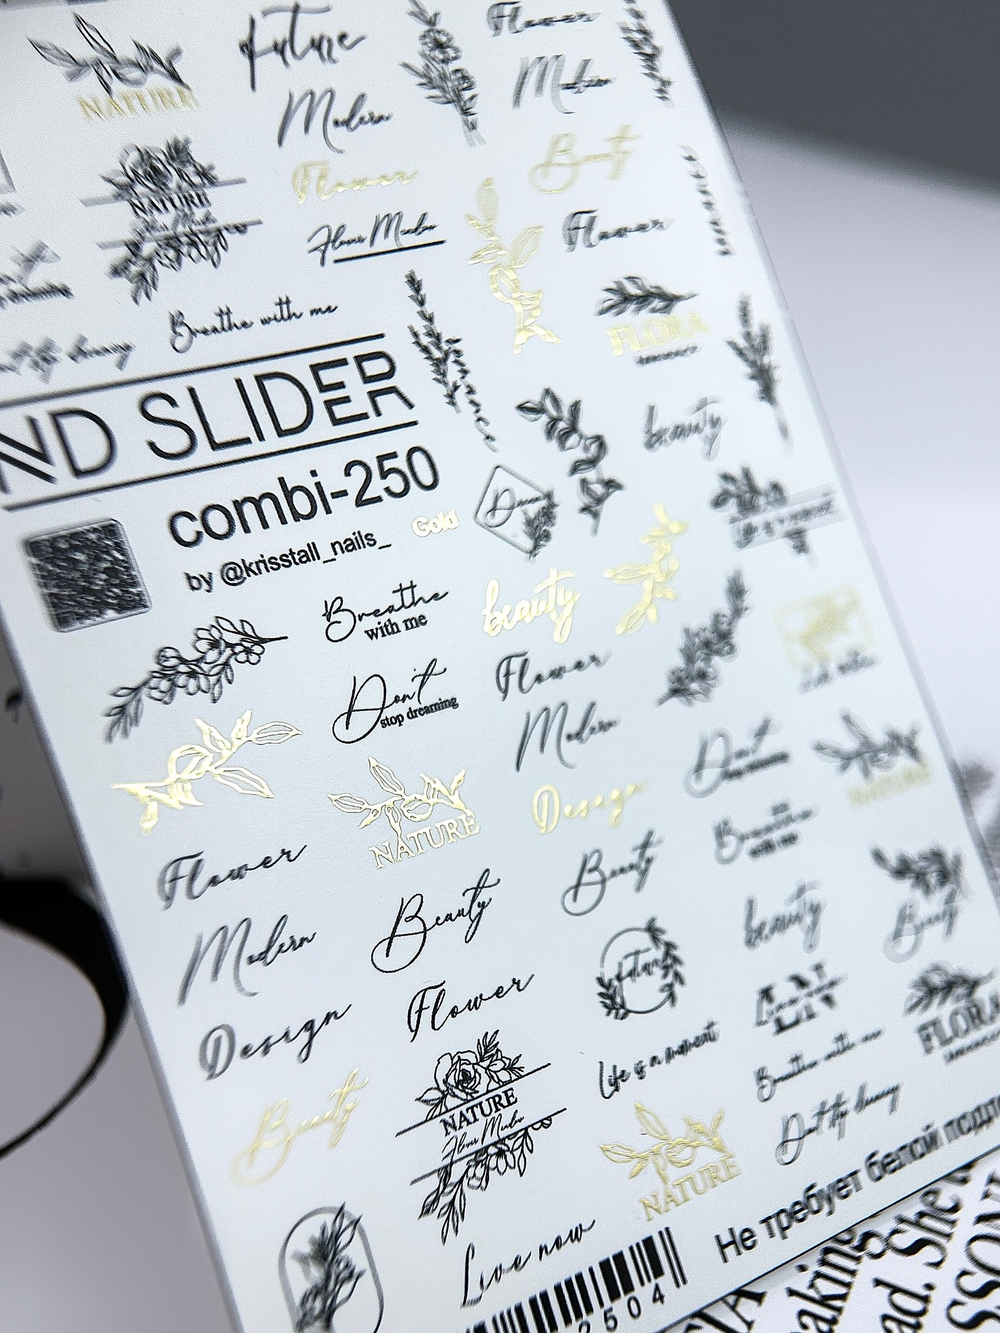 NATURE
Future
Flower
Modern
Modern
Flower
Beauty
NATURE
Flower Meadow
Flower
Breathe with me
FLORA
ND SLIDER
beauty
combi-250
Gold
by @krisstall_nails_
Breathe
with me
beauty
Flower
Don't
stop dreaming
Modern
Don't
Design
NATURE
NATURE
Flower
Beauty
Beauty
Breathe
with me
Modern
beauty
Beauty
Flower
Design
FLORA
Life is a moment
Breathe with me
NATURE
Flower Meadow
Beauty
NATURE
Не требует белой
Live now
2504
aking
ad. She
SSON